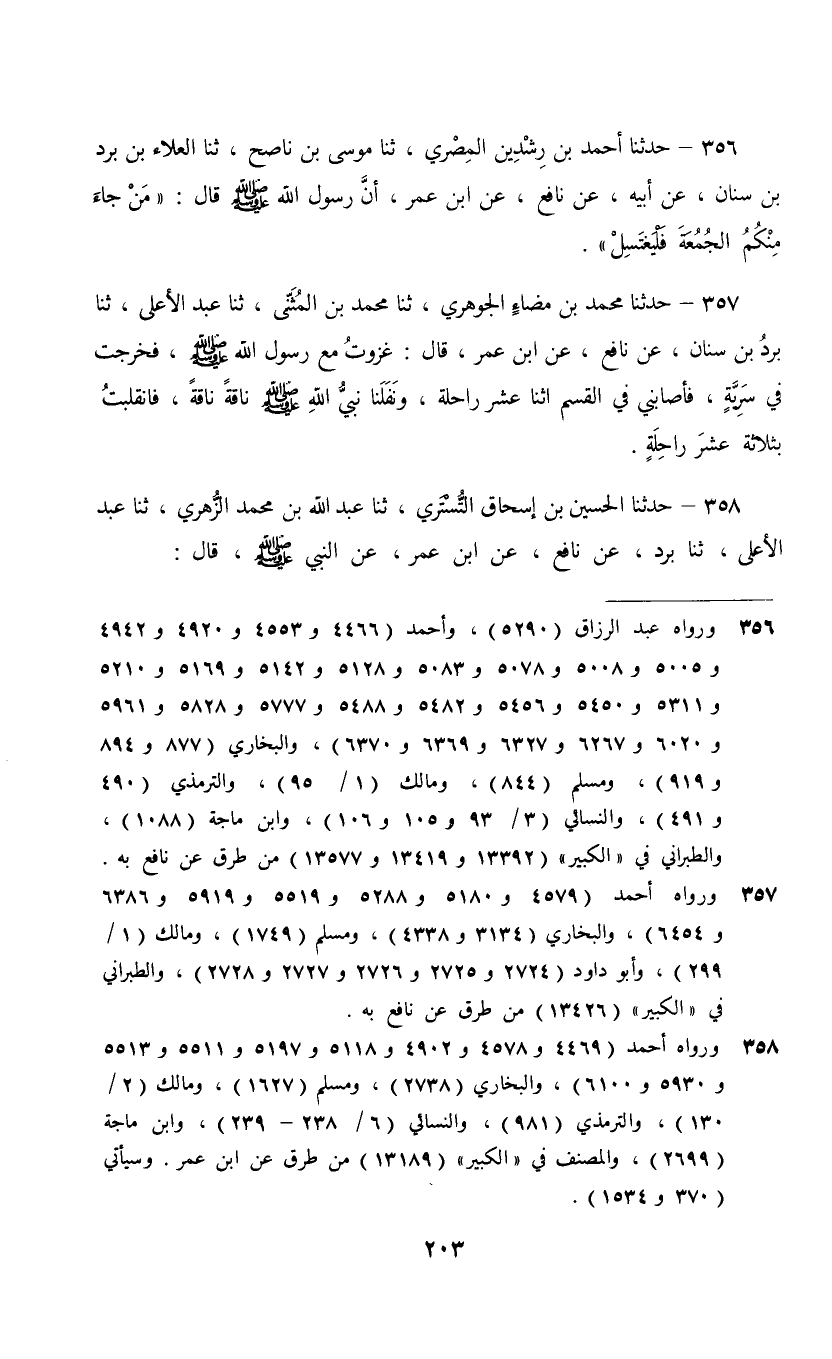 ٣٥٦ – حدثنا أحمد بن رِشْدِين المِصْري ، ثنا موسى بن ناصح ، ثنا العلاء بن برد
بن سنان ، عن أبيه ، عن نافع ، عن ابن عمر ، أنَّ رسول الله ﷺ قال : « مَنْ جاءَ
مِنْكُمُ الجُمُعَةَ فَلْيَغْتَسِلْ » .
٣٥٧ – حدثنا محمد بن مضاءٍ الجوهري ، ثنا محمد بن المُثَنّى ، ثنا عبد الأعلى ، ثنا
بردُ بن سنان ، عن نافع ، عن ابن عمر ، قال : غزوتُ مع رسول الله ﷺ ، فخرجت
في سَرِيَّةٍ ، فأصابني في القسم اثنا عشر راحلة ، ونَفَلَنا نبيُّ اللهِ ﷺ ناقةً ناقةً ، فانقلبتُ
بثلاثة عشرَ راحِلَةٍ .
٣٥٨ – حدثنا الحسين بن إسحاق التُّسْتَري ، ثنا عبد الله بن محمد الزُّهري ، ثنا عبد
الأعلى ، ثنا برد ، عن نافع ، عن ابن عمر ، عن النبي ﷺ ، قال :
٣٥٦ ورواه عبد الرزاق (٥٢٩٠) ، وأحمد (٤٤٦٦ و ٤٥٥٣ و ٤٩٢٠ و ٤٩٤٢
و ٥٠٠٥ و ٥٠٠٨ و ٥٠٧٨ و ٥٠٨٣ و ٥١٢٨ و ٥١٤٢ و ٥١٦٩ و ٥٢١٠
و ٥٣١١ و ٥٤٥٠ و ٥٤٥٦ و ٥٤٨٢ و ٥٤٨٨ و ٥٧٧٧ و ٥٨٢٨ و ٥٩٦١
و ٦٠٢٠ و ٦٢٦٧ و ٦٣٢٧ و ٦٣٦٩ و ٦٣٧٠) ، والبخاري (٨٧٧ و ٨٩٤
و ٩١٩) ، ومسلم (٨٤٤) ، ومالك (١ / ٩٥) ، والترمذي (٤٩٠
و ٤٩١) ، والنسائي (٣ / ٩٣ و ١٠٥ و ١٠٦) ، وابن ماجة (١٠٨٨) ،
والطبراني في « الكبير » (١٣٣٩٢ و ١٣٤١٩ و ١٣٥٧٧) من طرق عن نافع به .
٣٥٧ ورواه أحمد (٤٥٧٩ و ٥١٨٠ و ٥٢٨٨ و ٥٥١٩ و ٥٩١٩ و ٦٣٨٦
و ٦٤٥٤) ، والبخاري (٣١٣٤ و ٤٣٣٨) ، ومسلم (١٧٤٩) ، ومالك (١ /
٢٩٩) ، وأبو داود (٢٧٢٤ و ٢٧٢٥ و ٢٧٢٦ و ٢٧٢٧ و ٢٧٢٨) ، والطبراني
في « الكبير » (١٣٤٢٦) من طرق عن نافع به .
٣٥٨ ورواه أحمد (٤٤٦٩ و ٤٥٧٨ و ٤٩٠٢ و ٥١١٨ و ٥١٩٧ و ٥٥١١ و ٥٥١٣
و ٥٩٣٠ و ٦١٠٠) ، والبخاري (٢٧٣٨) ، ومسلم (١٦٢٧) ، ومالك (٢ /
١٣٠) ، والترمذي (٩٨١) ، والنسائي (٦ / ٢٣٨ – ٢٣٩) ، وابن ماجة
(٢٦٩٩) ، والمصنف في « الكبير » (١٣١٨٩) من طرق عن ابن عمر . وسيأتي
(٣٧٠ و ١٥٣٤) .
٢٠٣